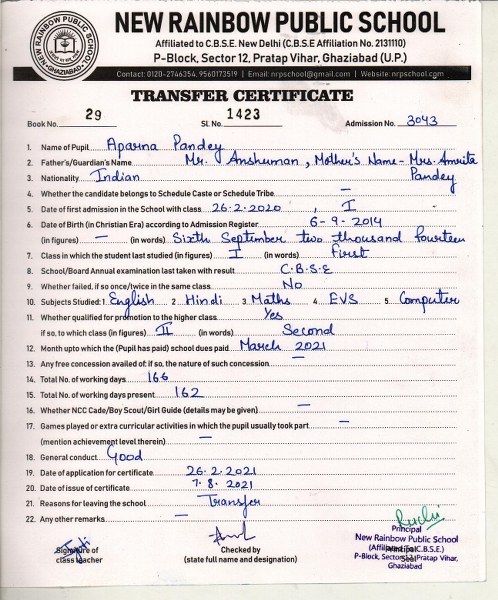 NEW RAINBOW PUBLIC SCHOOL
NEW RAINBOW PUBLIC SCHOOL
GHAZIABAD
Affiliated to C.B.S.E. New Delhi (C.B.S.E Affiliation No. 2131110)
P-Block, Sector 12, Pratap Vihar, Ghaziabad (U.P.)
Contact: 0120-2746354, 9560173519 | Email: nrpschool@gmail.com | Website: nrpschool.com
TRANSFER CERTIFICATE
Book No. 29 Sl. No. 1423 Admission No. 3043
1. Name of Pupil Aparna Pandey
2. Father's/Guardian's Name Mr. Anshuman, Mother's Name - Mrs. Amrita
3. Nationality Indian Pandey
4. Whether the candidate belongs to Schedule Caste or Schedule Tribe —
5. Date of first admission in the School with class 26-2-2020, I
6. Date of Birth (in Christian Era) according to Admission Register 6-9-2014
(in figures) — (in words) Sixth September two thousand fourteen
7. Class in which the student last studied (in figures) I (in words) First
8. School/Board Annual examination last taken with result C.B.S.E
9. Whether failed, if so once/twice in the same class No
10. Subjects Studied: 1. English 2. Hindi 3. Maths 4. EVS 5. Computer
11. Whether qualified for promotion to the higher class. Yes
if so, to which class (in figures) II (in words) Second
12. Month upto which the (Pupil has paid) school dues paid March 2021
13. Any free concession availed of: if so, the nature of such concession —
14. Total No. of working days 166
15. Total No. of working days present 162
16. Whether NCC Cade/Boy Scout/Girl Guide (details may be given) —
17. Games played or extra curricular activities in which the pupil usually took part —
(mention achievement level therein) —
18. General conduct Good
19. Date of application for certificate 26-2-2021
20. Date of issue of certificate 7-8-2021
21. Reasons for leaving the school Transfer
22. Any other remarks —
Signature of
class teacher
Checked by
(state full name and designation)
Principal
New Rainbow Public School
(Affiliated To C.B.S.E.)
P-Block, Sector-12, Pratap Vihar,
Ghaziabad
Principal
Seal